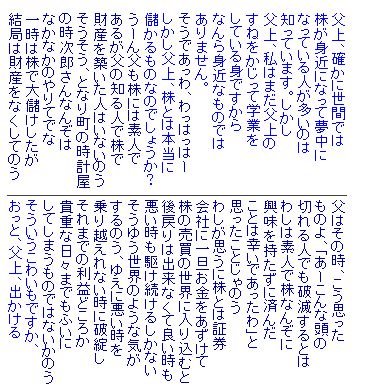 父上、確かに世間では
株が身近になって夢中に
なっている人が多いのは
知っています。しかし
父上、私はまだ父上の
すねをかじって学業を
している身ですから
なんら身近なものでは
ありません。
そうであっわ、わっはっはー
しかし父上、株とは本当に
儲かるものなのでしょうか？
うーん父も株には素人で
あるが父の知る人で株で
財産を築いた人はいないのう
そうそう、となり町の時計屋
の時次郎さんなんぞは
なかなかのやりてでな
一時は株で大儲けしたが
結局は財産をなくしてのう
父はその時、こう思った
ものよ、「あーこんな頭の
切れる人でも破滅するとは
わしは素人で株なんぞに
興味を持たずに済んだ
ことは幸いであったわ」と
思ったことじゃのう
わしが思うに株とは証券
会社に一旦お金をあずけて
株の売買の世界に入り込むと
後戻りは出来なくて良い時も
悪い時も駆け続けるしかない
そうゆう世界のような気が
するのう、ゆえに悪い時を
乗り越えれない時に破綻し
それまでの利益どころか
貴重な日々までもふいに
してしまうものではないかのう
そういうこわいものですか、
おっと、父上、出かける